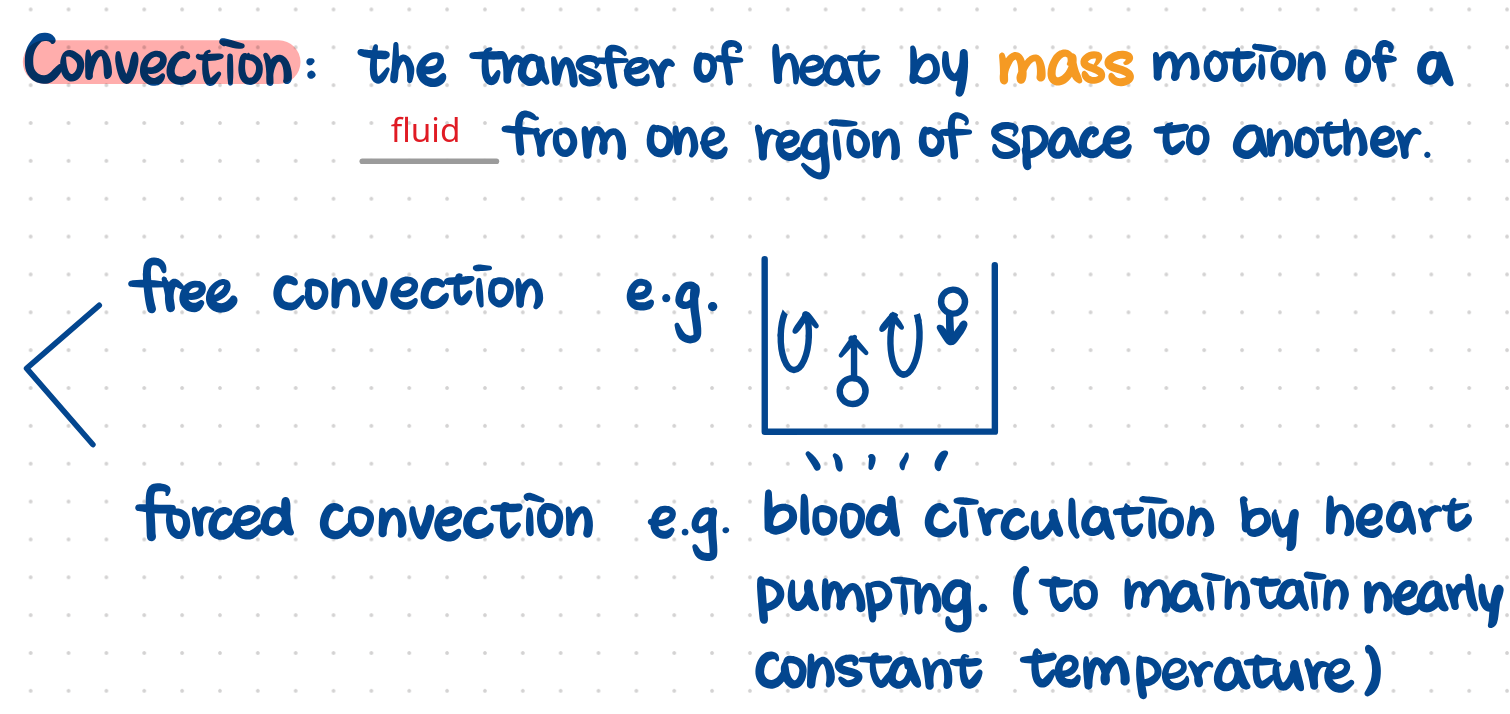 Convection: the transfer of heat by mass motion of a
fluid from one region of space to another.
free convection e.g.
forced convection e.g. blood circulation by heart
pumping. (to maintain nearly
constant temperature)